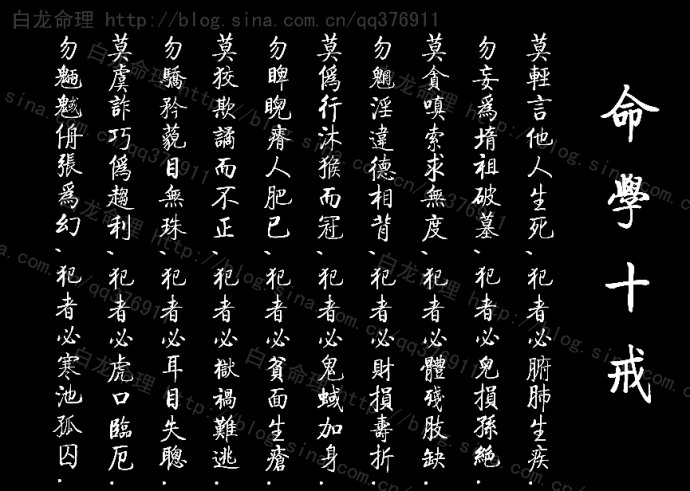 命學十戒
莫輕言他人生死、犯者必腑肺生疾.
勿妄為堉祖破墓、犯者必兒損孫絕.
莫貪嗔索求無度、犯者必體殘肢缺.
勿魍淫違德相背、犯者必財損壽折.
莫偽行沐猴而冠、犯者必鬼蜮加身.
勿睥睨瘠人肥已、犯者必貧面生瘡.
莫狡欺譎而不正、犯者必獄禍難逃.
勿驕矜藐目無珠、犯者必耳目失聰.
莫虞詐巧偽趨利、犯者必虎口臨厄.
勿魎魆侜張為幻、犯者必寒池孤囚.
白龙命理 http://blog.sina.com.cn/qq376911